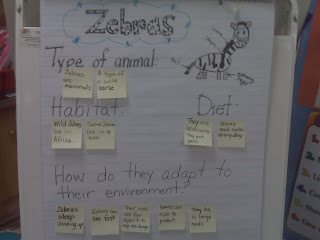 Zebras
Type of animal:
Zebras
are
mammals
A type of
a wild
horse
Habitat:
Diet:
Wild Zebras
live in
Africa
Some Zebras
live in a
zoo
They are
Zebras
need water
every day
How do they adapt to
their environment?
Zebras
sleep
standing up
Zebras can
run fast
Their eyes
are far
apart
They live
in large
herds